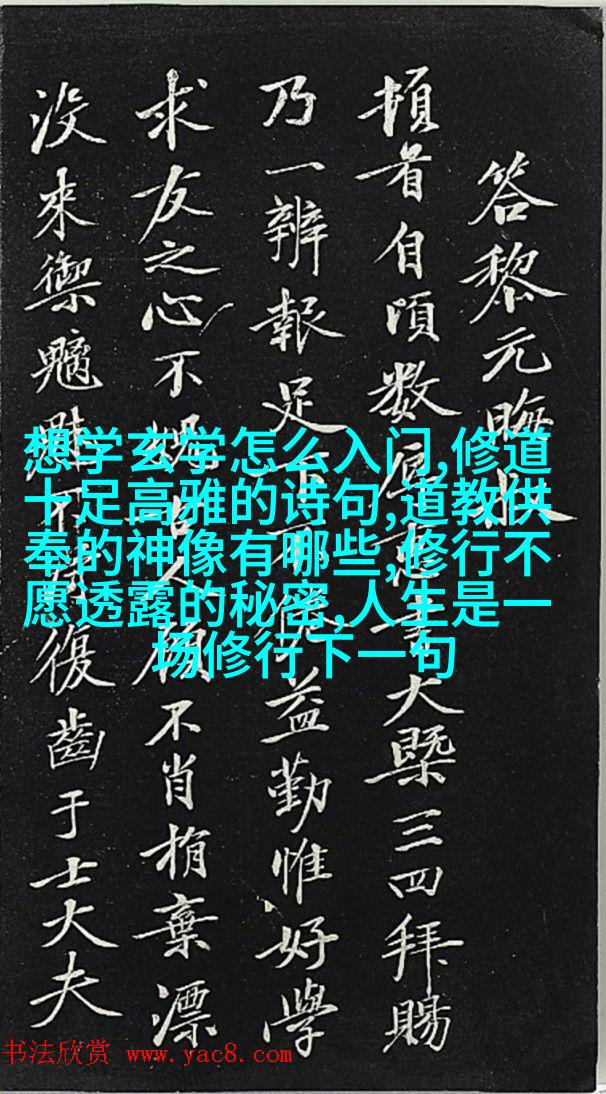 答黎元晦
頓首自頃數
大槩三四拜賜
乃一辨報足
益勤惟好學
求友之心不
不肖捐棄漂
沒來禦魑魅
復齒于士大夫
想学玄学怎么入门,修道
十足高雅的诗句,道教供
奉的神像有哪些,修行不
愿透露的秘密,人生是一
场修行下一句
书法欣赏 www.yac8.com